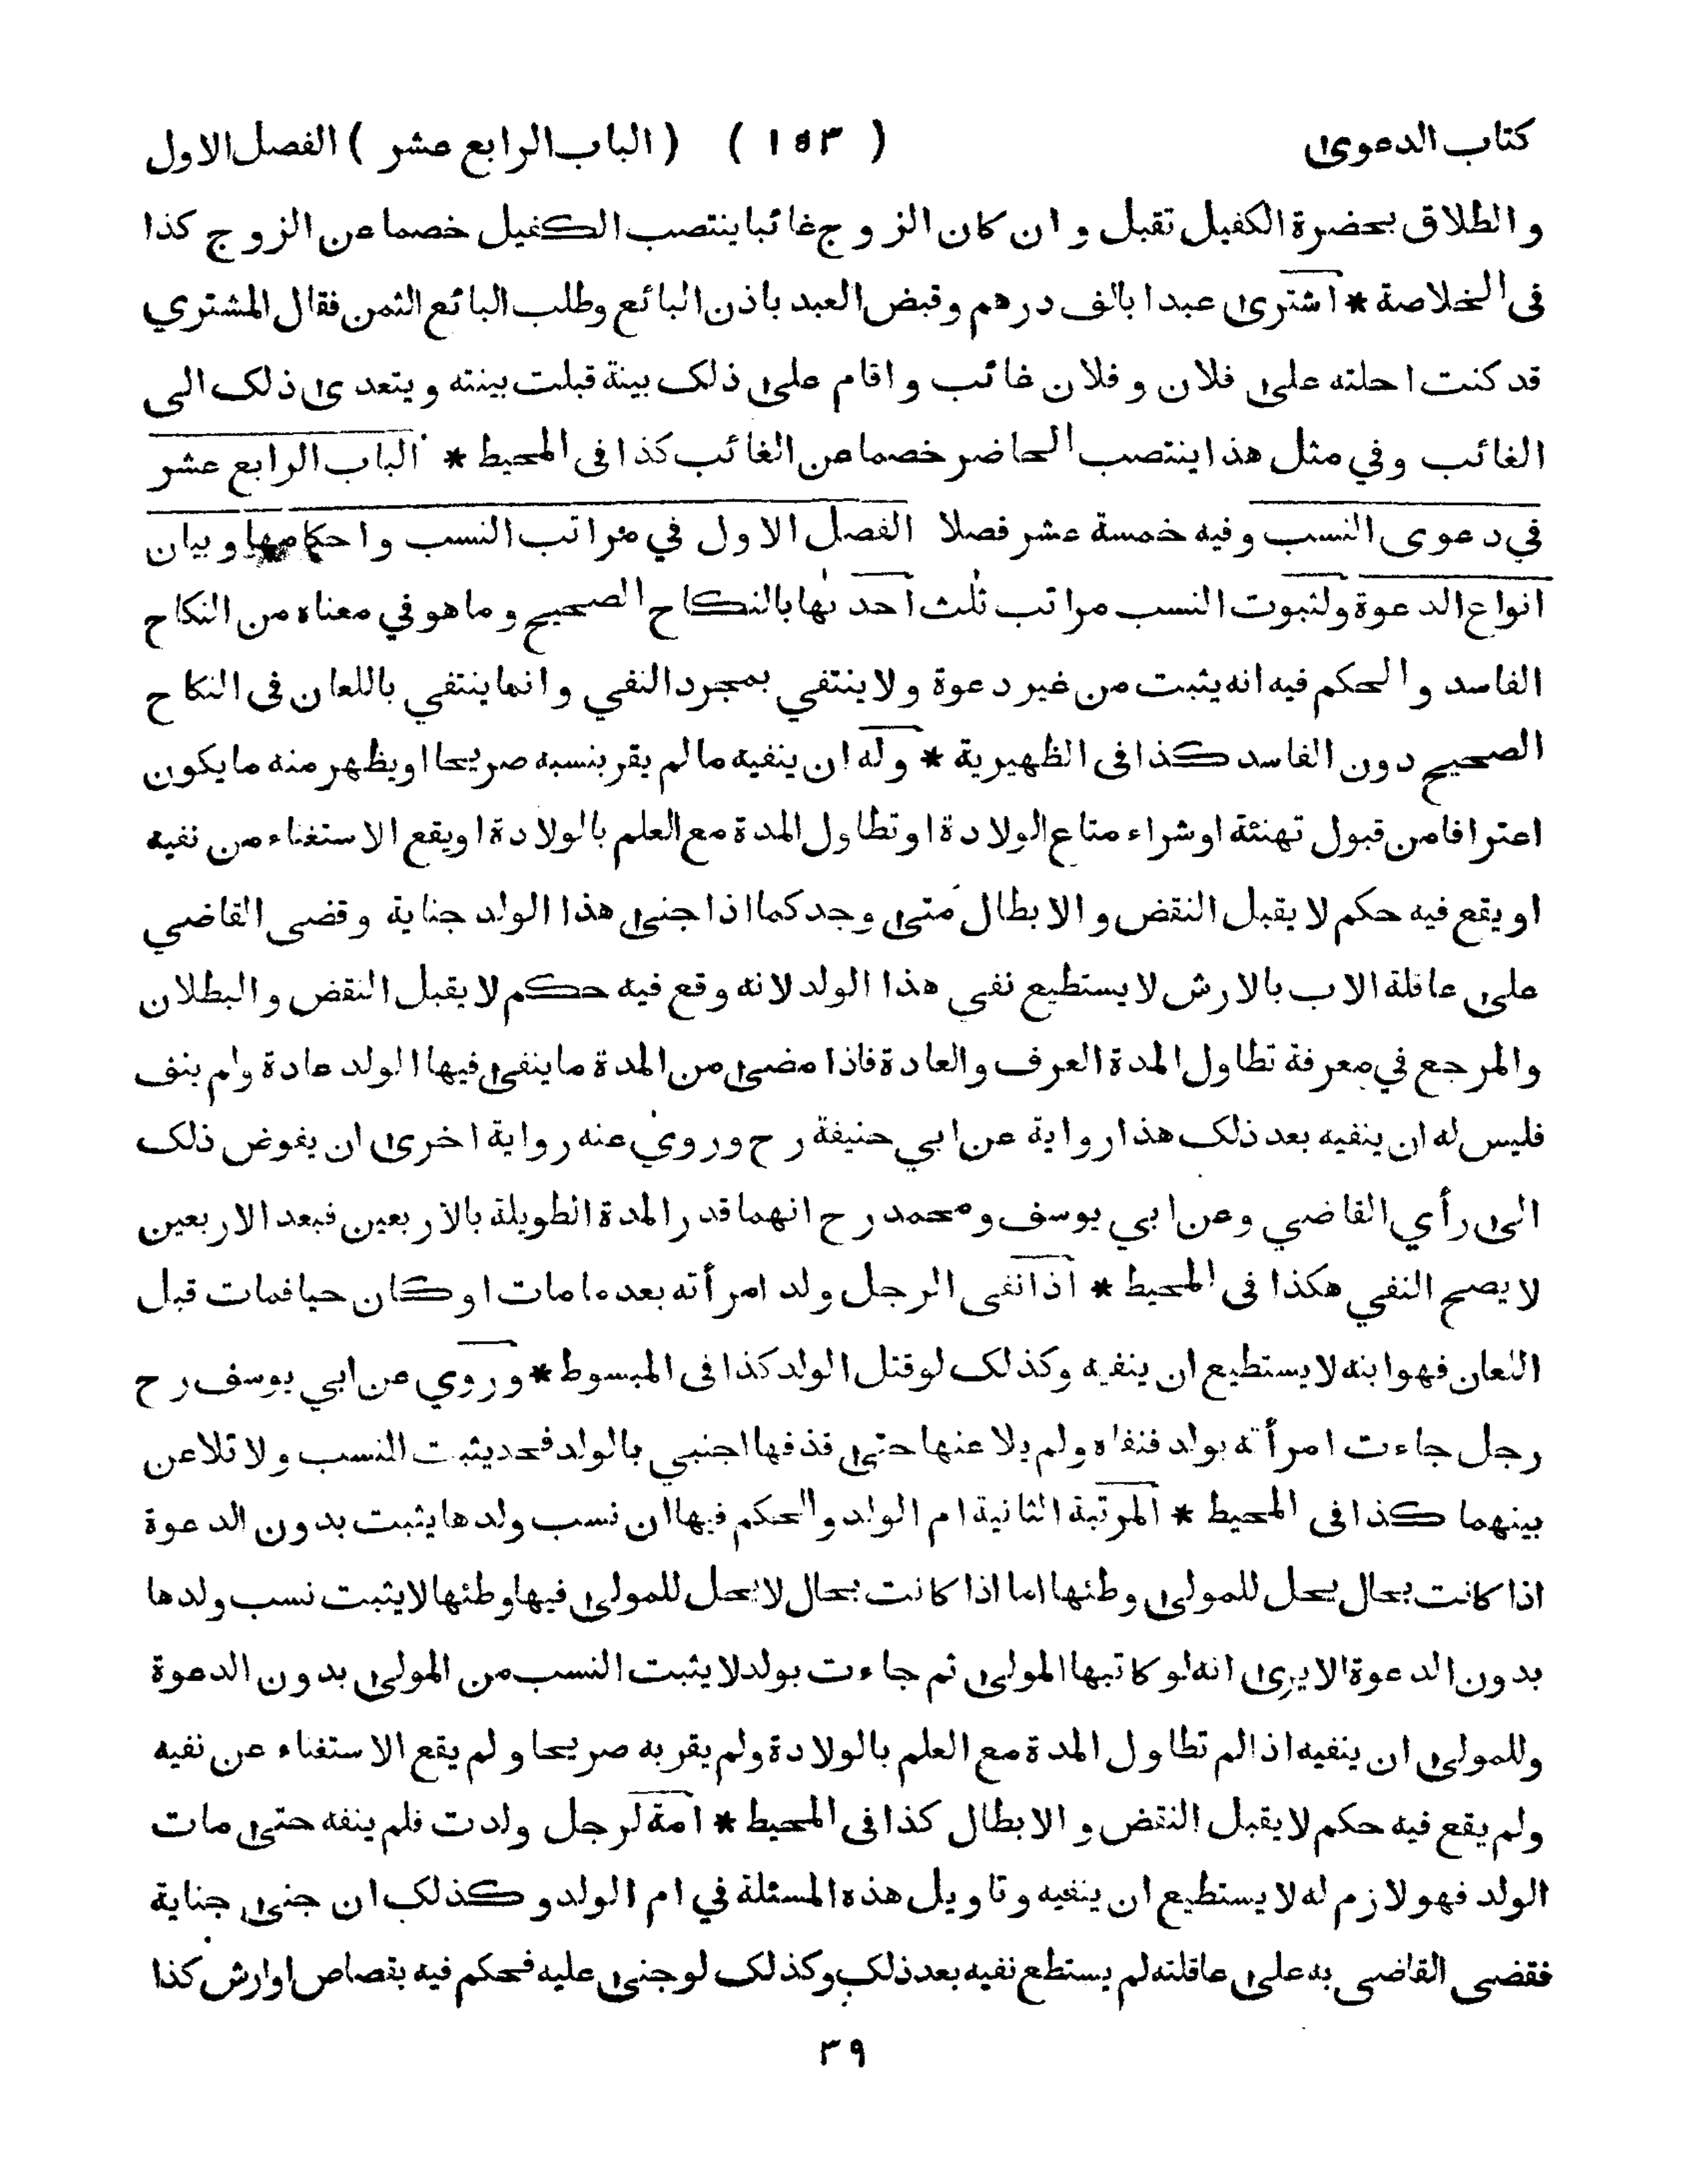 كتاب الدعوى ( ١٥٣ ) ( الباب الرابع عشر ) الفصل الاول
والطلاق بحضرة الكفيل تقبل وان كان الزوج غائبا ينتصب الكفيل خصما عن الزوج كذا
فى الخلاصة * اشترى عبدا بالف درهم وقبض العبد باذن البائع وطلب البائع الثمن فقال المشتري
قد كنت احلته على فلان وفلان غائب واقام على ذلك بينة قبلت بينته ويتعدى ذلك الى
الغائب وفي مثل هذا ينتصب الحاضر خصما عن الغائب كذا فى المحيط * الباب الرابع عشر
في دعوى النسب وفيه خمسة عشر فصلا الفصل الاول في مراتب النسب واحكامها وبيان
انواع الدعوة ولثبوت النسب مراتب ثلث احدٰىها بالنكاح الصحيح وما هو في معناه من النكاح
الفاسد والحكم فيه انه يثبت من غير دعوة ولا ينتفي بمجرد النفي وانما ينتفي باللعان فى النكاح
الصحيح دون الفاسد كذا فى الظهيرية * وله ان ينفيه ما لم يقر بنسبه صريحا او يظهر منه ما يكون
اعترافا من قبول تهنئة او شراء متاع الولادة او تطاول المدة مع العلم بالولادة او يقع الاستغناء من نفيه
او يقع فيه حكم لا يقبل النقض والابطال متى وجد كما اذا جنى هذا الولد جناية وقضى القاضي
على عاقلة الاب بالارش لا يستطيع نفى هذا الولد لانه وقع فيه حكم لا يقبل النقض والبطلان
والمرجع في معرفة تطاول المدة العرف والعادة فاذا مضى من المدة ما ينفى فيها الولد عادة ولم ينف
فليس له ان ينفيه بعد ذلك هذا رواية عن ابي حنيفة رح وروي عنه رواية اخرى ان يفوض ذلك
الى رأي القاضي وعن ابي يوسف ومحمد رح انهما قدرا المدة الطويلة بالاربعين فبعد الاربعين
لا يصح النفي هكذا فى المحيط * اذا نفى الرجل ولد امرأته بعد ما مات او كان حيا فمات قبل
اللعان فهو ابنه لا يستطيع ان ينفيه وكذلك لو قتل الولد كذا فى المبسوط * وروي عن ابي يوسف رح
رجل جاءت امرأته بولد فنفاه ولم يلاعنها حتى قذفها اجنبي بالولد فحد يثبت النسب ولا تلاعن
بينهما كذا فى المحيط * المرتبة الثانية ام الولد والحكم فيها ان نسب ولدها يثبت بدون الدعوة
اذا كانت بحال يحل للمولى وطئها اما اذا كانت بحال لا يحل للمولى فيها وطئها لا يثبت نسب ولدها
بدون الدعوة الا يرى انه لو كاتبها المولى ثم جاءت بولد لا يثبت النسب من المولى بدون الدعوة
وللمولى ان ينفيه اذا لم تطاول المدة مع العلم بالولادة ولم يقر به صريحا ولم يقع الاستغناء عن نفيه
ولم يقع فيه حكم لا يقبل النقض والابطال كذا فى المحيط * امة لرجل ولدت فلم ينفه حتى مات
الولد فهو لازم له لا يستطيع ان ينفيه وتاويل هذه المسئلة في ام الولد وكذلك ان جنى جناية
فقضى القاضى به على عاقلته لم يستطع نفيه بعد ذلك وكذلك لو جنى عليه فحكم فيه بقصاص او ارش كذا
٣٩